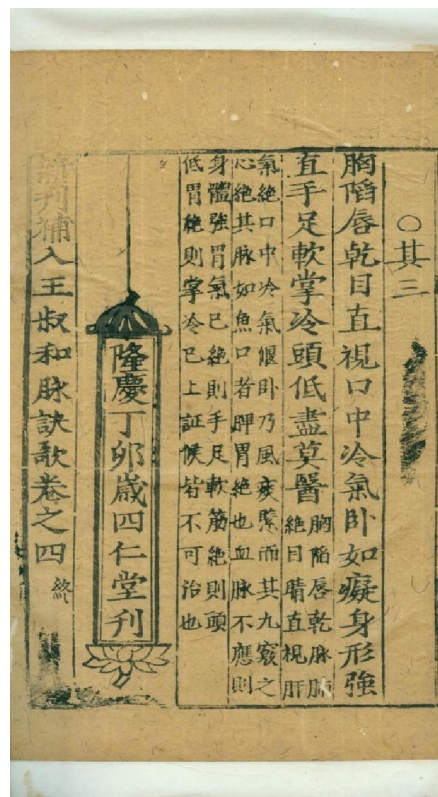 ○其三
胸陷唇乾目直視口中冷氣卧如癡身形強
直手足軟掌冷頭低盡莫醫
胸陷唇乾脉肺
絶目睛直視肝
氣絶口中冷氣偃卧乃風痰緊而其九竅之
心絶其脉如魚口若脾胃絶也血脉不應則
身體強胃氣已絶則手足軟筋絶則頭
低胃絶則掌冷已上証候皆不可治也
隆慶丁卯歲四仁堂刊
新刊補入王叔和脉訣歌卷之四 終